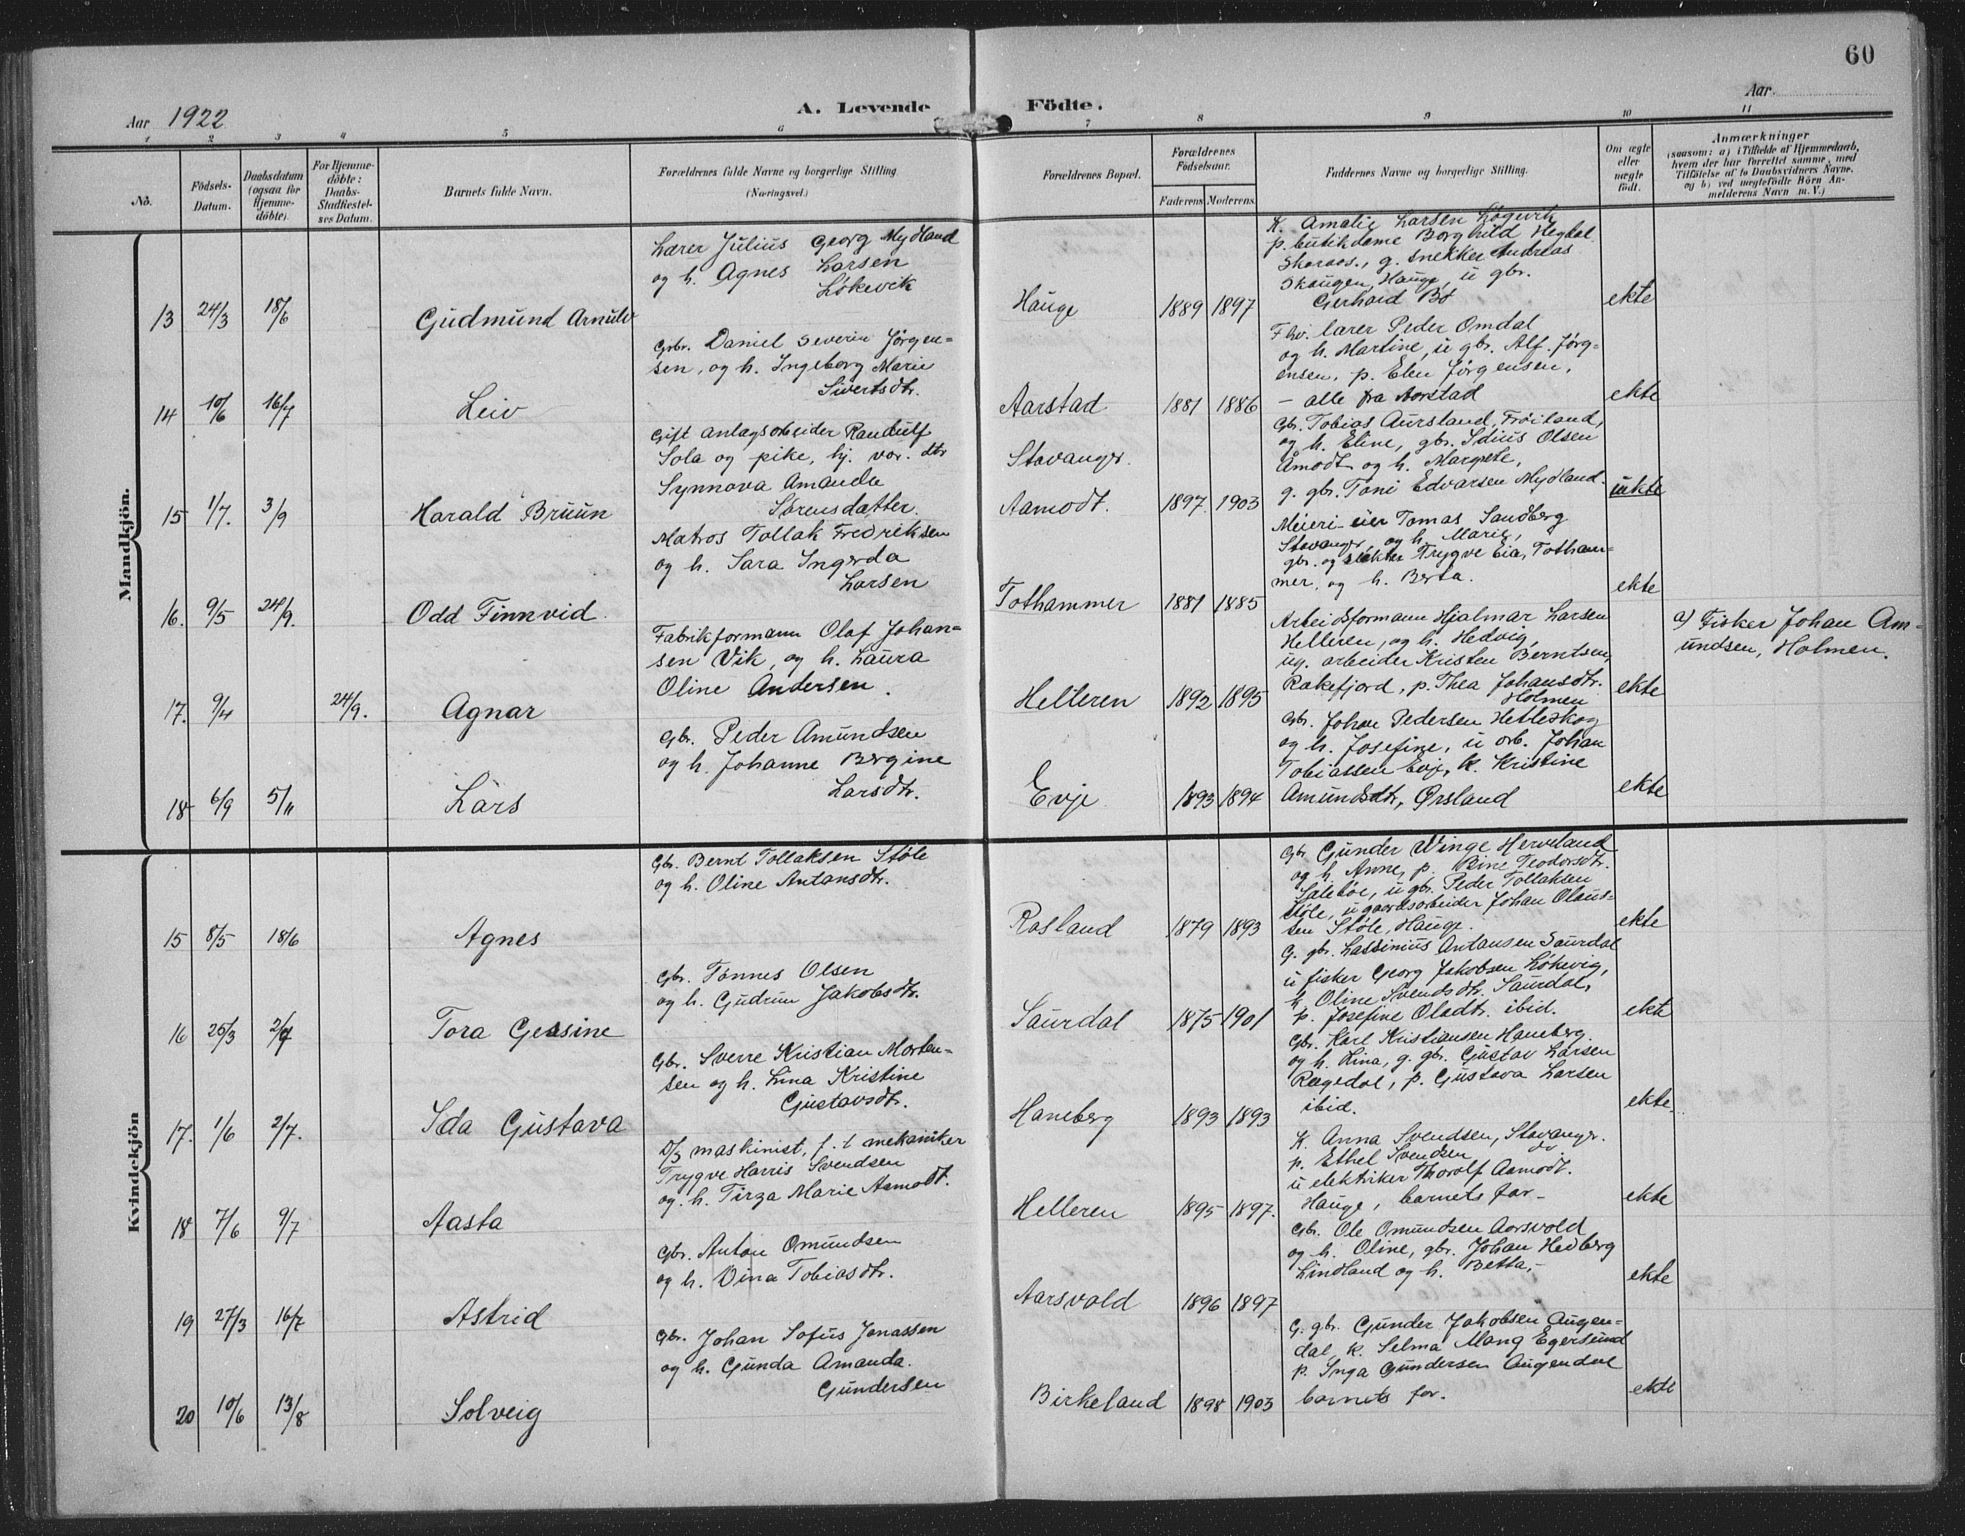 60
Aar 1922
A. Levende Födte.
Aar
1 2 3 4 5 6 7 8 9 10 11
No.
Födsels-
Datum.
Daabsdatum
(ogsaa for
Hjemme-
döbte).
For Hjemme-
döbte:
Daabs-
Stadfæstel-
ses Datum.
Barnets fulde Navn.
Forældrenes fulde Navne og borgerlige Stilling
(Næringsvei.)
Forældrenes Bopæl.
Forældrenes
Födselsaar.
Faderens Moderens
Faddernes Navne og borgerlige Stilling.
Om ægte
eller
uægte
födt.
Anmærkninger
(saasom: a) i Tilfælde af Hjemmedaab,
hvem der har forrettet samme, med
Tilföielse af to Daabsvidners Navne,
og b) ved uægtefödte Börn An-
melderens Navn m. V.)
Mandkjön.
13 24/3 18/6 Gudmund Arnulv
Lærer Julius Georg Mydland
og h. Agnes Larsen
Løkevik
Hauge 1889 1897
K. Amalie Larsen Løgevik
p. butikdame Borghild Hegdal
Skaraas., g. snekker Andreas
Skaugen, Hauge, u gbr.
Gerhard Bø
ekte
14 10/6 16/7 Leiv
Gbr. Daniel Severin Jørgen-
sen, og h. Ingeborg Marie
Sivertsdtr.
Aarstad 1881 1886
Fhv. lærer Peder Omdal
og h. Martine, u gbr. Alf. Jørg-
ensen, p. Elen Jørgensen,
- alle fra Aarstad
ekte
15 1/7. 3/9 Harald Bruun
Gift anlægsarbeider Randulf
Sola og pike, hj. vær. dtr
Synnova Amanda
Sørensdatter.
Stavanger.
Aamodt. 1897 1903
Gbr. Tobias Aursland, Frøitland,
og h. Eline, gbr. Idius Olsen
Åmodt og h. Margrete,
g. gbr. Toni Edvarsen Mydland.
uekte
16. 9/5 24/9. Odd Finnvid
Matros Tollak Fredriksen
og h. Sara Ingerda
Larsen
Tothammer 1881 1885
Meieri-eier Tomas Sandberg
Stavanger, og h. Marie,
gbr. og slakter Trygve Eia, Totham-
mer, og h. Berta.
ekte
17. 9/4 24/9. Agnar
Fabrikformann Olaf Johan-
sen Vik, og h. Laura
Oline Andersen.
Helleren 1892 1895
Arbeidsformann Hjalmar Larsen
Helleren, og h. Hedvig,
ug. arbeider Kristen Berntsen,
Rækefjord, p. Thea Johansdtr.
Holmen
ekte
a) Fisker Johan Am-
undsen, Holmen.
18 6/9 5/11 Lars
Gbr. Peder Amundsen
og h. Johanne Bergine
Larsdtr.
Evje 1893 1894
Gbr. Johan Pedersen Hetleskog
og h. Josefine, u arb. Johan
Tobiassen Evje, K. Kristine
Amundsdtr, Ørsland
ekte
Kvindekjön
15 8/5 18/6 Agnes
Gbr. Bernt Tollaksen Støle
og h. Oline Antansdtr.
Rosland 1879 1893
Gbr Gunder Vinge Herveland
og h. Anne, p. Bine Teodorsdtr.
Salebøe, u gbr. Peder Tollaksen
Støle, u gaardsarbeider Johan Olaus-
sen Støle, Hauge.
ekte
16 25/3 2/7 Tora Gesine
Gbr. Tønnes Olsen
og h. Gudrun Jakobsdtr.
Saurdal 1875 1901
G. gbr. Lassinius Antansen Saurdal
u fisker Georg Jakobsen Løkevig,
k. Oline Svendsdtr. Saurdal,
p. Josefine Olsdtr. ibid.
ekte
17. 1/6 2/7. Ida Gustava
Gbr. Sverre Kristian Morten-
sen og h. Lina Kristine
Gustavsdtr.
Haneberg 1893 1893
Gbr. Karl Kristiansen Haneberg
og h. Lina, g. gbr. Gustav Larsen
Rægedal, p. Gustava Larsen
ibid.
ekte.
18 7/6 9/7 Aasta
D/S maskinist, f. t mekaniker
Trygve Harris Svendsen
og h. Tirza Marie Aamodt.
Helleren 1895 1897.
K. Anna Svendsen, Stavanger.
p. Ethel Svendsen do
u elektriker Thorolf Aamodt.
Hauge, barnets far-
ekte
19 27/3 16/7 Astrid
Gbr. Anton Omundsen
og h. Vina Tobiasdtr.
Aarsvold 1896 1897
Gbr. Ole Omundsen Aarsvold
og h. Oline, gbr. Johan Hedberg
Lindland og h. Betta,-
ekte
20 10/6 13/8 Solveig
Gbr. Johan Sofus Jonassen
og h. Gunda Amanda.
Gundersen
Birkeland 1898 1903
G. gbr. Gunder Jakobsen Augen-
dal, k. Selma Mong Egersund
p. Inga Gundersen Augendal
barnets far.
ekte